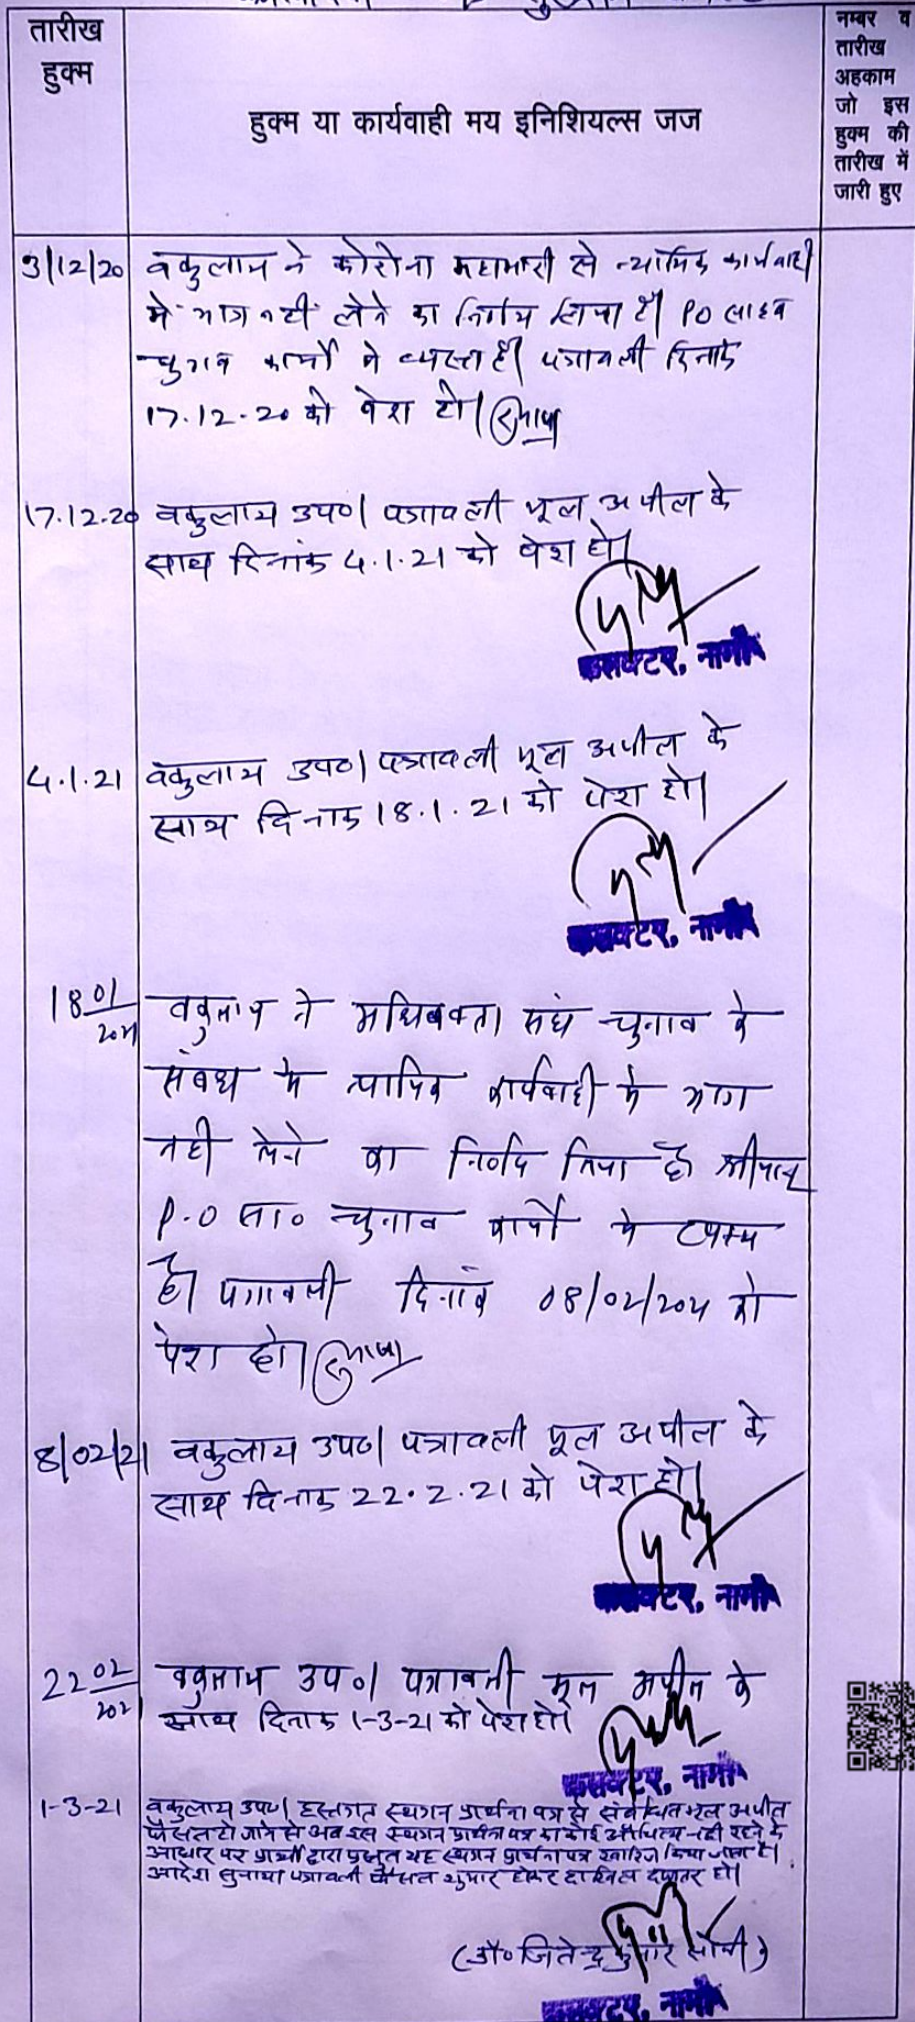 तारीख
हुक्म
हुक्म या कार्यवाही मय इनिशियल्स जज
नम्बर व
तारीख
अहकाम
जो इस
हुक्म की
तारीख में
जारी हुए
3/12/20 वकुलाय ने कोरोना महामारी से न्यायिक कार्यवाही
में भाग नही लेने का निर्णय लिया है। PO साहब
चुनाव कार्यो में व्यस्त है। पत्रावली दिनांक
17.12.20 को पेश हो।
17.12.20 वकुलाय उप०। पत्रावली मूल अपील के
साथ दिनांक 4.1.21 को पेश हो।
कलक्टर, नागौर
4.1.21 वकुलाय उप०। पत्रावली मूल अपील के
साथ दिनांक 18.1.21 को पेश हो।
कलक्टर, नागौर
18 01/2021 वकुलाय ने अधिवक्ता संघ चुनाव के
संबंध में न्यायिक कार्यवाही में भाग
नही लेने का निर्णय लिया है श्रीमान्
P.O सा० चुनाव कार्यो में व्यस्त
है। पत्रावली दिनांक 08/02/2021 को
पेश हो।
8/02/21 वकुलाय उप०। पत्रावली मूल अपील के
साथ दिनांक 22.2.21 को पेश हो।
कलक्टर, नागौर
22 02/2021 वकुलाय उप०। पत्रावली मूल अपील के
साथ दिनांक 1-3-21 को पेश हो।
कलक्टर, नागौर
1-3-21 वकुलाय उप०। हस्तगत स्थगन प्रार्थना पत्र से संबंधित मूल अपील
फैसल हो जाने से अब इस स्थगन प्रार्थना पत्र का कोई औचित्य नही रहने के
आधार पर प्रार्थी द्वारा प्रस्तुत यह स्थगन प्रार्थना पत्र खारिज किया जाता है।
आदेश सुनाया पत्रावली फैसल शुमार होकर दाखिल दफ्तर हो।
(डॉ० जितेन्द्र कुमार सोनी)
कलक्टर, नागौर